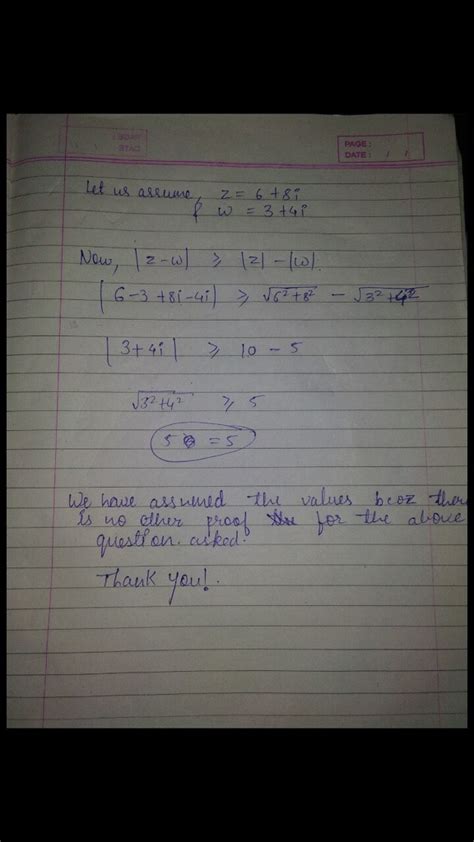 PAGE :
DATE : / /
Let us assume, z = 6 + 8i
& w = 3 + 4i
Now, |z - w| ≥ |z| - |w|.
|6 - 3 + 8i - 4i| ≥ √6² + 8² - √3² + 4²
|3 + 4i| ≥ 10 - 5
√3² + 4² ≥ 5
5 = 5
We have assumed the values bcoz ther
is no other proof for the above
question asked.
Thank you!.